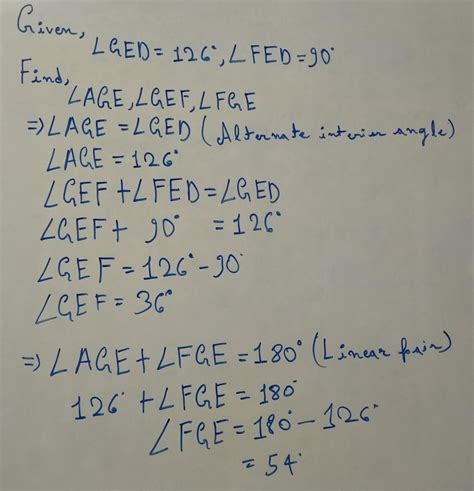 Given,
∠GED = 126°, ∠FED = 90°
Find,
∠AGE, ∠GEF, ∠FGE
⇒ ∠AGE = ∠GED (Alternate interier angle)
∠AGE = 126°
∠GEF + ∠FED = ∠GED
∠GEF + 90° = 126°
∠GEF = 126° - 90°
∠GEF = 36°
⇒ ∠AGE + ∠FGE = 180° (Linear pair)
126° + ∠FGE = 180°
∠FGE = 180° - 126°
= 54°